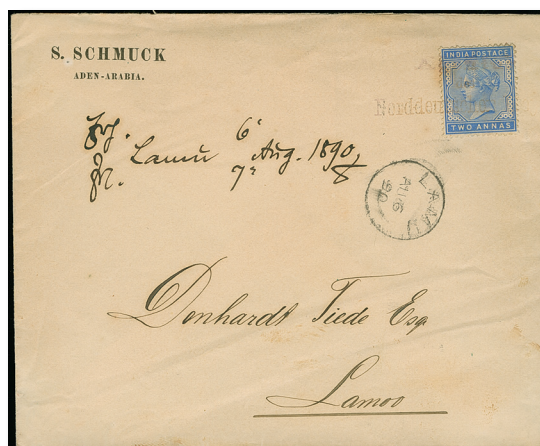 S. SCHMUCK
ADEN-ARABIA.
INDIA POSTAGE
TWO ANNAS
Lamu 6 Aug. 1890
7
8
LAMU
AU 6
90
Denhardt Tiede Esq.
Lamoo